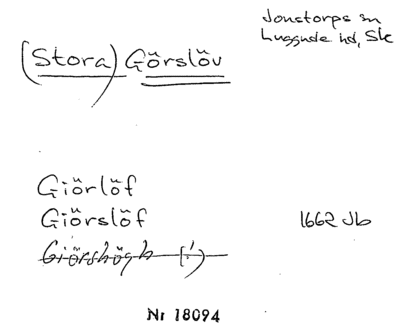 Jonstorps sn
Luggude hd, Sk
(Stora) Görslöv
Giörlöf
Giörslöf
1662 Jb
Giörshögh (!)
Nr 18094